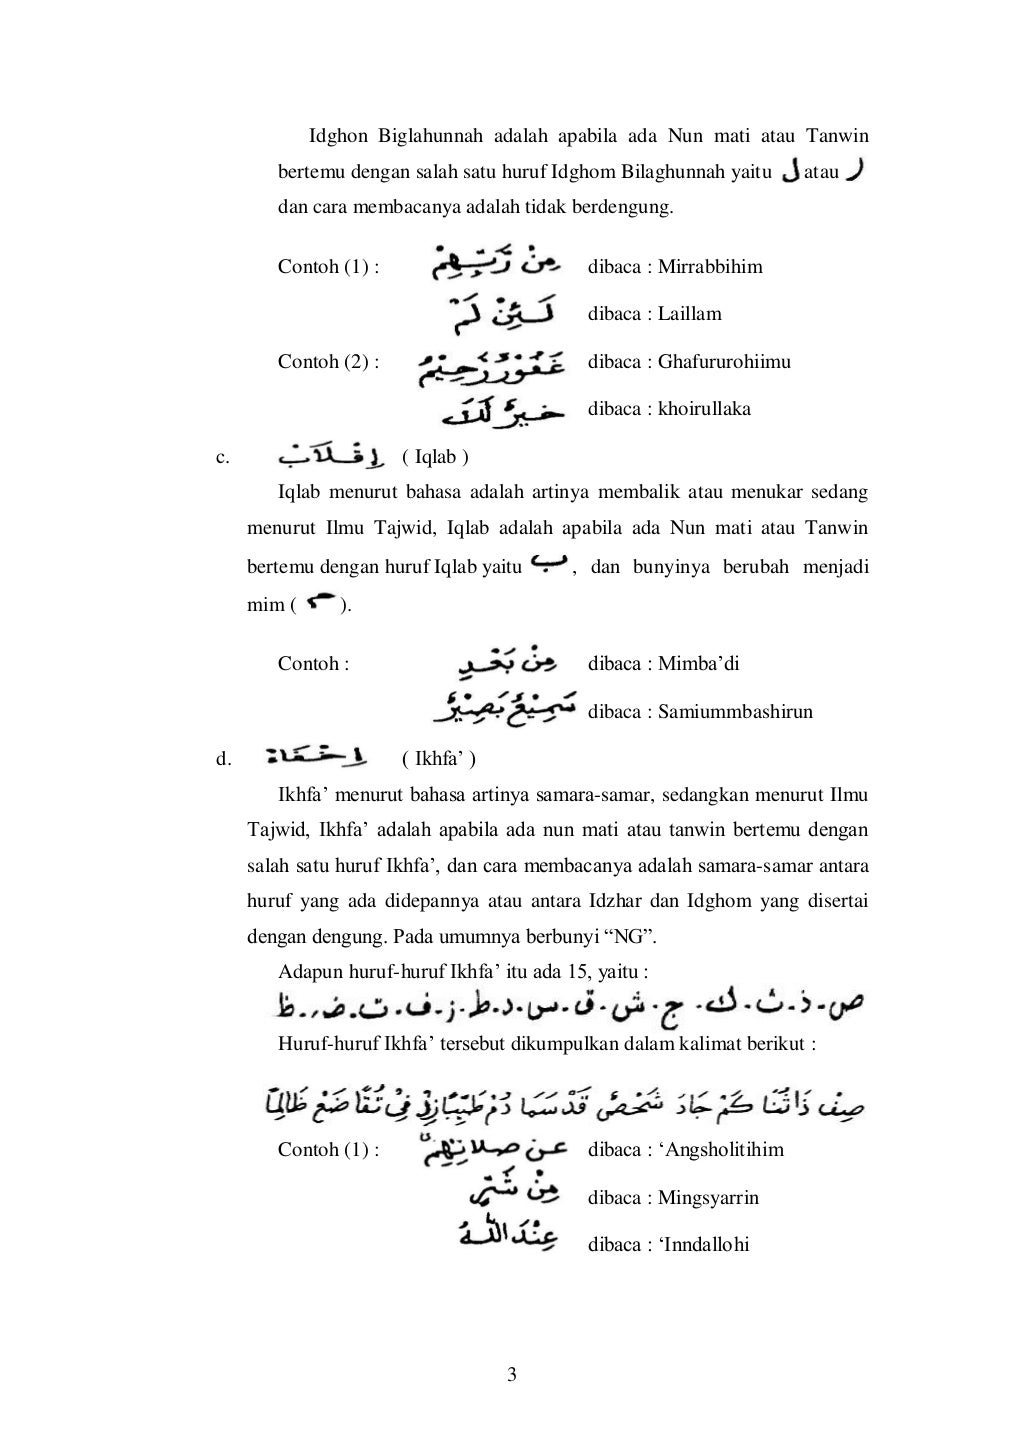 Idghon Biglahunnah adalah apabila ada Nun mati atau Tanwin
bertemu dengan salah satu huruf Idghom Bilaghunnah yaitu ل atau ر
dan cara membacanya adalah tidak berdengung.
Contoh (1) : مِنْ رَّبِّهِمْ dibaca : Mirrabbihim
لَئِنْ لَمْ dibaca : Laillam
Contoh (2) : غَفُوْرٌ رَحِيْمٌ dibaca : Ghafururohiimu
خَيْرٌ لَكَ dibaca : khoirullaka
c. إِقْلَابْ ( Iqlab )
Iqlab menurut bahasa adalah artinya membalik atau menukar sedang
menurut Ilmu Tajwid, Iqlab adalah apabila ada Nun mati atau Tanwin
bertemu dengan huruf Iqlab yaitu ب , dan bunyinya berubah menjadi
mim ( م ).
Contoh : مِنْ بَعْدِ dibaca : Mimba’di
سَمِيْعٌ بَصِيْرٌ dibaca : Samiummbashirun
d. إِخْفَاءْ ( Ikhfa’ )
Ikhfa’ menurut bahasa artinya samara-samar, sedangkan menurut Ilmu
Tajwid, Ikhfa’ adalah apabila ada nun mati atau tanwin bertemu dengan
salah satu huruf Ikhfa’, dan cara membacanya adalah samara-samar antara
huruf yang ada didepannya atau antara Idzhar dan Idghom yang disertai
dengan dengung. Pada umumnya berbunyi “NG”.
Adapun huruf-huruf Ikhfa’ itu ada 15, yaitu :
ص - ذ - ث - ك - ج - ش - ق - س - د - ط - ز - ف - ت - ض - ظ
Huruf-huruf Ikhfa’ tersebut dikumpulkan dalam kalimat berikut :
صِفْ ذَا ثَنَا كَمْ جَادَ شَخْصٌ قَدْ سَمَا دُمْ طَيِّبًا زِدْ فِيْ تُقًا ضَعْ ظَالِمًا
Contoh (1) : عَنْ صَلَاتِهِمْ dibaca : ‘Angsholitihim
مِنْ شَرِّ dibaca : Mingsyarrin
عِنْدَ اللّٰهِ dibaca : ‘Inndallohi
3